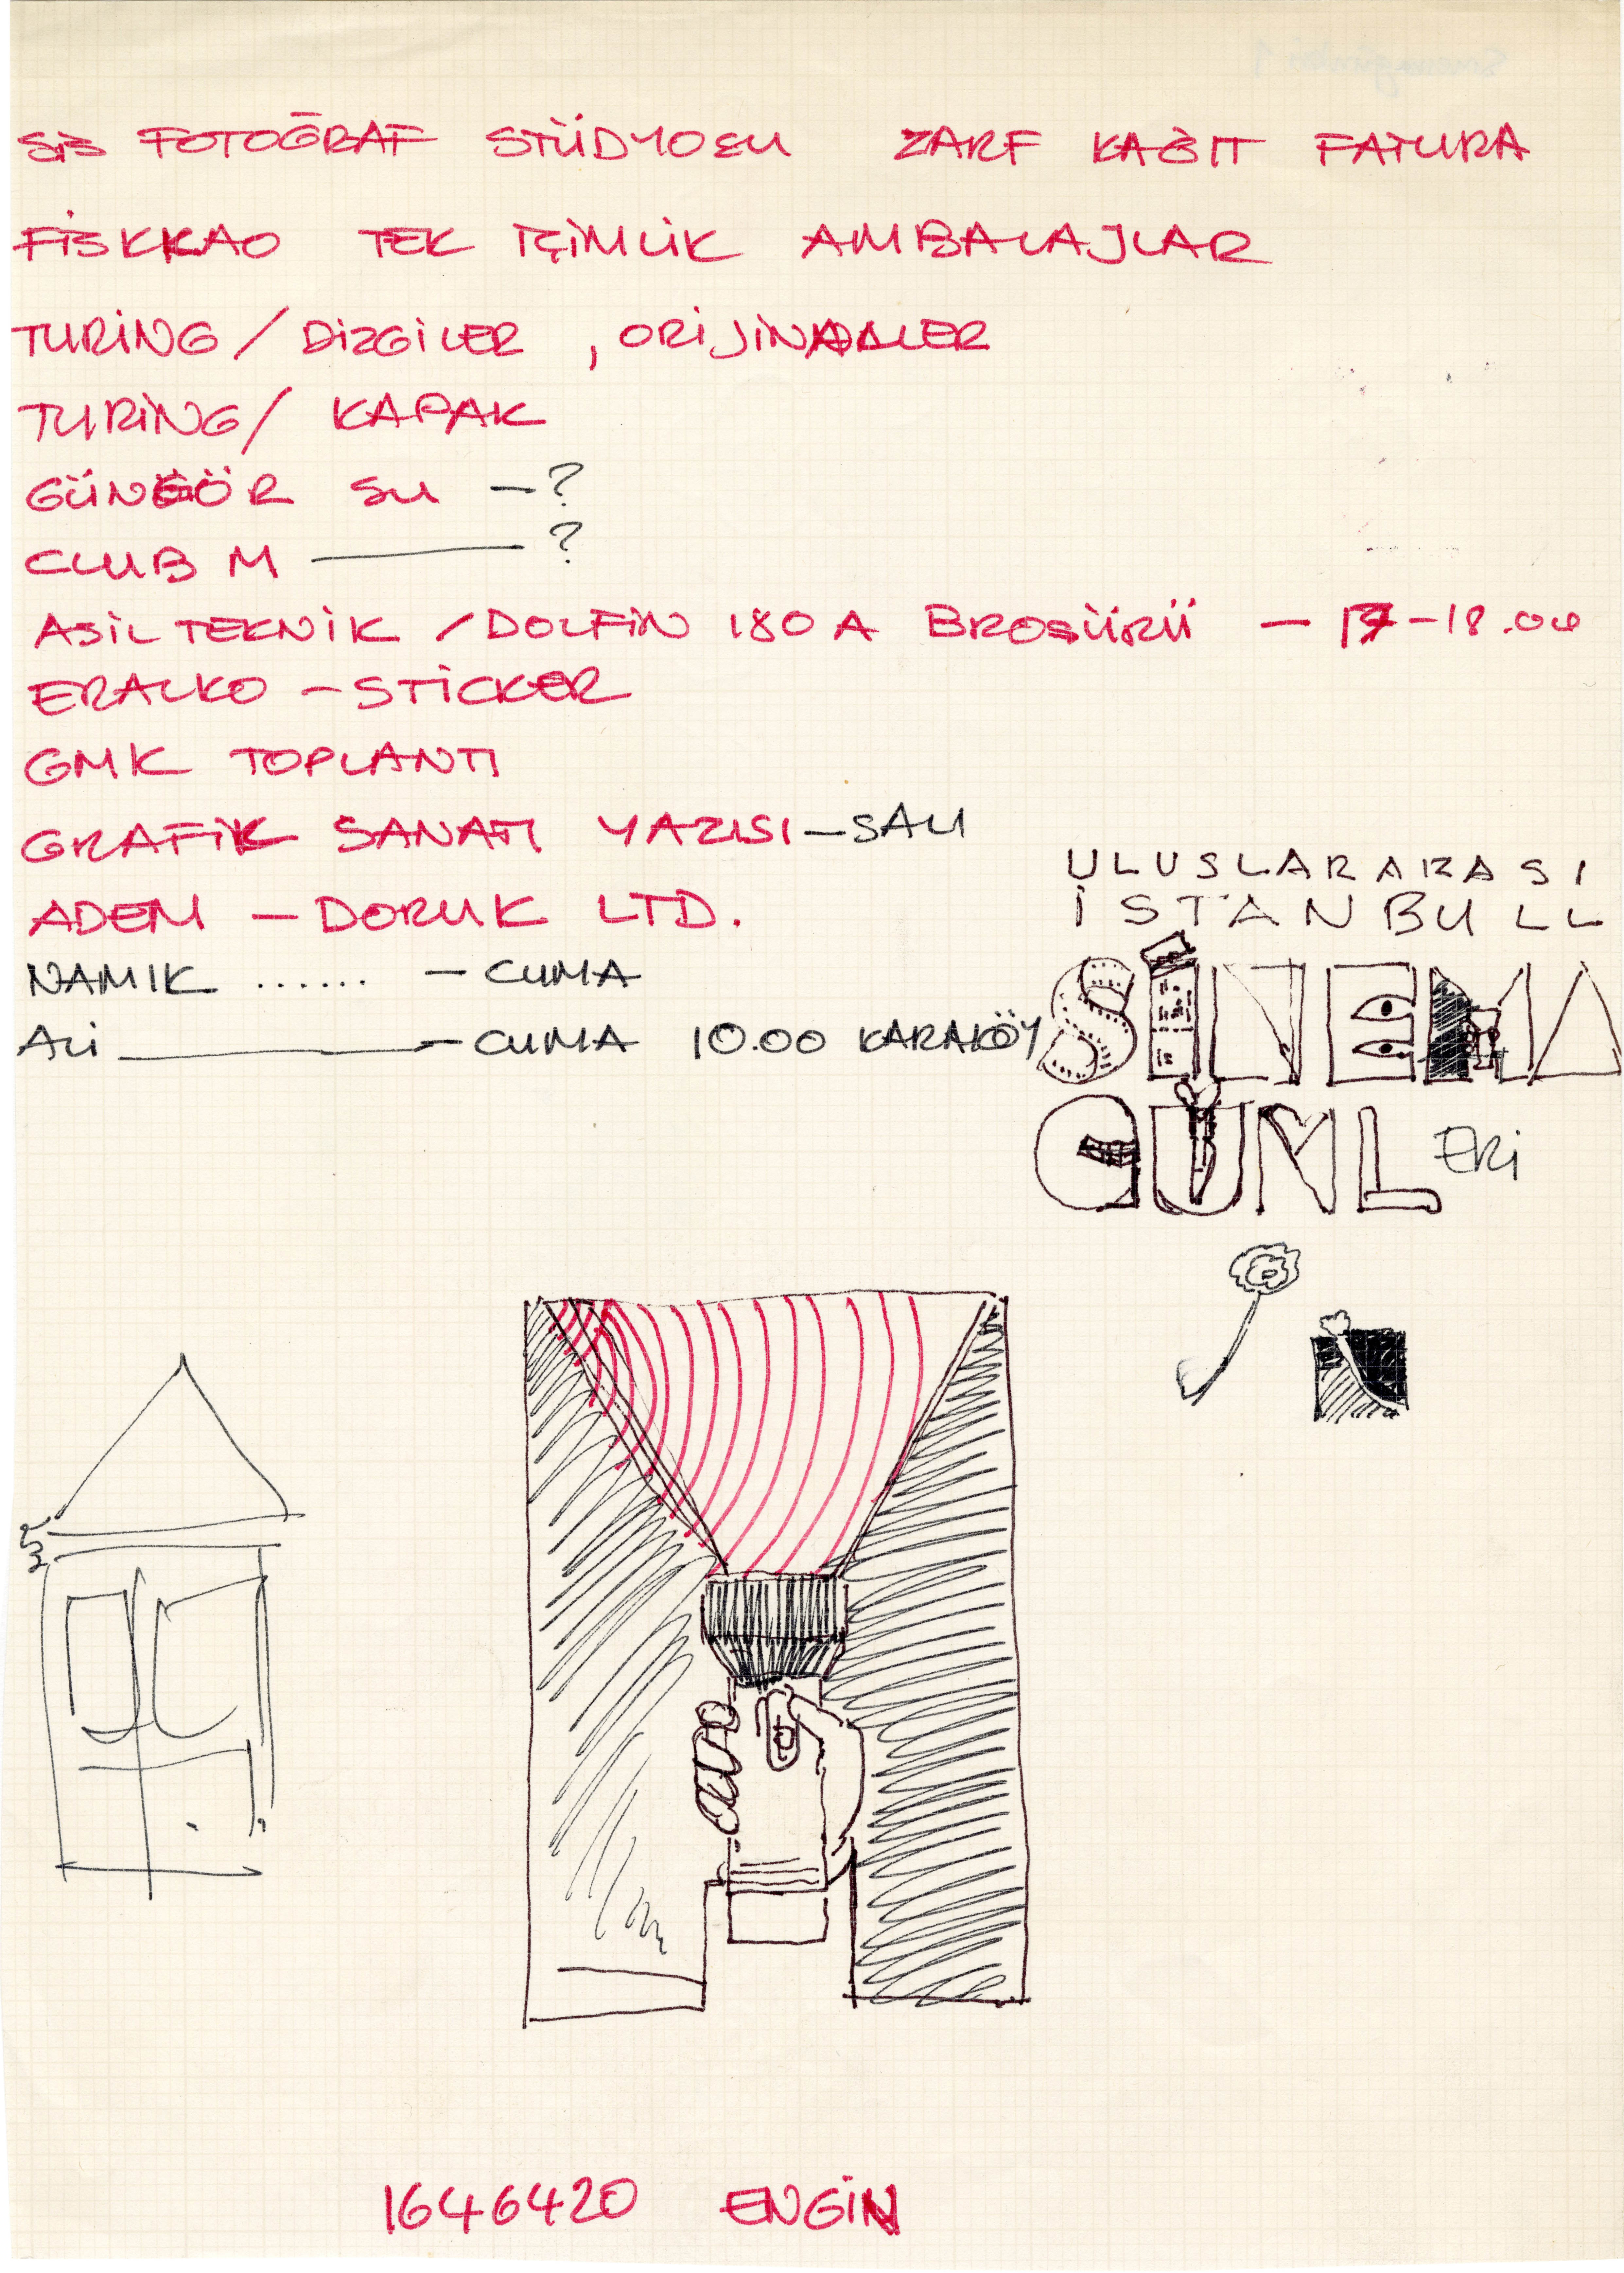 SİS FOTOĞRAF STÜDYOSU ZARF KAĞIT FATURA
FİSKKAO TEK İÇİMLİK AMBALAJLAR
TURİNG / DİZGİLER , ORİJİNALLER
TURİNG / KAPAK
GÜNGÖR SU - ?
CLUB M — ?
ASİL TEKNİK / DOLFİN 180 A BROŞÜRÜ - 17-18.00
ERALKO - STİCKER
GMK TOPLANTI
GRAFİK SANATI YAZISI - SALI
ADEM - DORUK LTD.
NAMIK ...... - CUMA
ALİ — CUMA 10.00 KARAKÖY
ULUSLARARASI
İSTANBULL
SİNEMA
GÜNLERİ
1646420 ENGİN